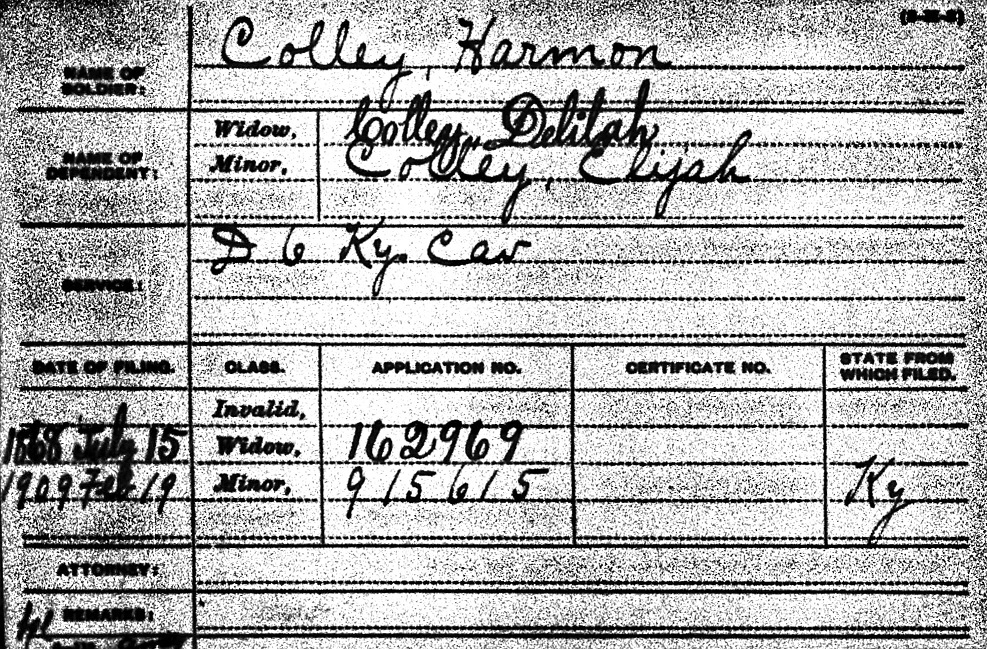 Colley, Harmon
NAME OF
SOLDIER:
Widow, Colley, Delilah
NAME OF
DEPENDENT:
Minor, Colley, Elijah
D 6 Ky. Cav
SERVICE:
DATE OF FILING. CLASS. APPLICATION NO. CERTIFICATE NO. STATE FROM
WHICH FILED.
Invalid,
1868 July 15 Widow, 162969
1909 Feb 19 Minor, 915615 Ky
ATTORNEY:
REMARKS: